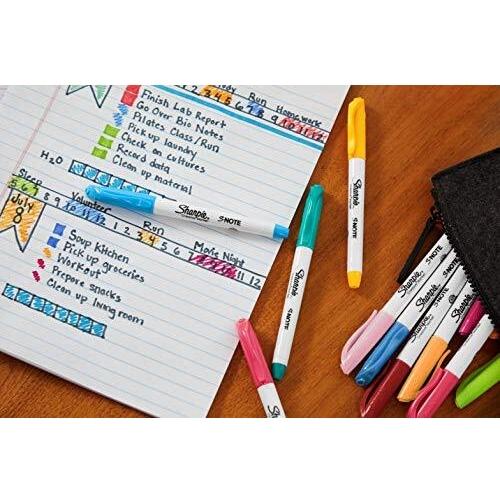 Study Run Homework
1 2 3 4 5 6 7 8 9 10 11 12
Finish Lab Report
Go Over Bio Notes
Pilates Class/Run
Pick up laundry
Check on cultures
Record data
Clean up material
H2O
Sleep Volunteer Run Movie Night
5 6 7 8 9 10 11 12 1 2 3 4 5 6 7 8 9 10 11 12
July
8
Soup Kitchen
Pick up groceries
Workout
Prepare snacks
Clean up living room
Sharpie S·NOTE
Sharpie S·NOTE
Sharpie S·NOTE
S·NOTE
Sharpie S·NOTE
Sharpie S·NOTE
Sharpie S·NOTE
Sharpie
Sharpie